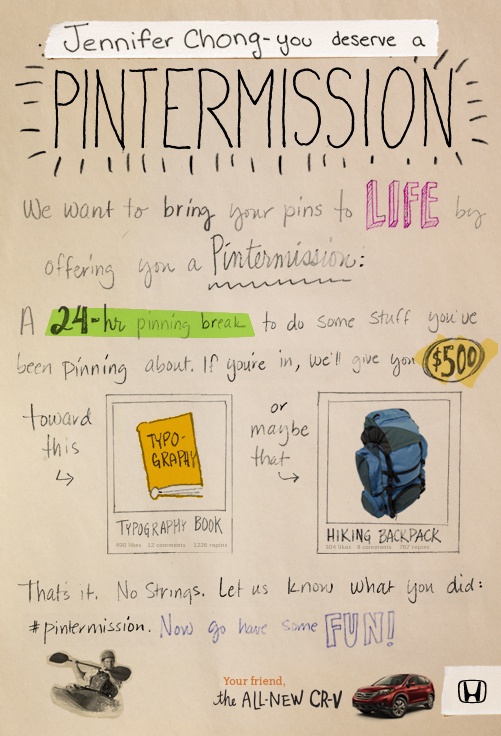 Jennifer Chong-you deserve a
PINTERMISSION
We want to bring your pins to LIFE by
offering you a Pintermission:
A 24-hr pinning break to do some stuff you've
been pinning about. If you're in, we'll give you $500
toward
this
TYPO-
GRAPHY
TYPOGRAPHY BOOK
490 likes 12 comments 1226 repins
or
maybe
that
HIKING BACKPACK
304 likes 8 comments 762 repins
That's it. No Strings. Let us know what you did:
#pintermission. Now go have some FUN!
Your friend,
the ALL-NEW CR-V